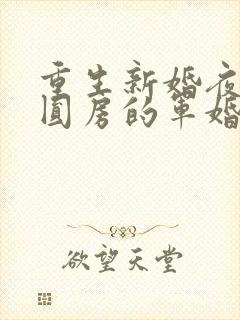 重生新婚夜
圆房的军婚
欲望天堂